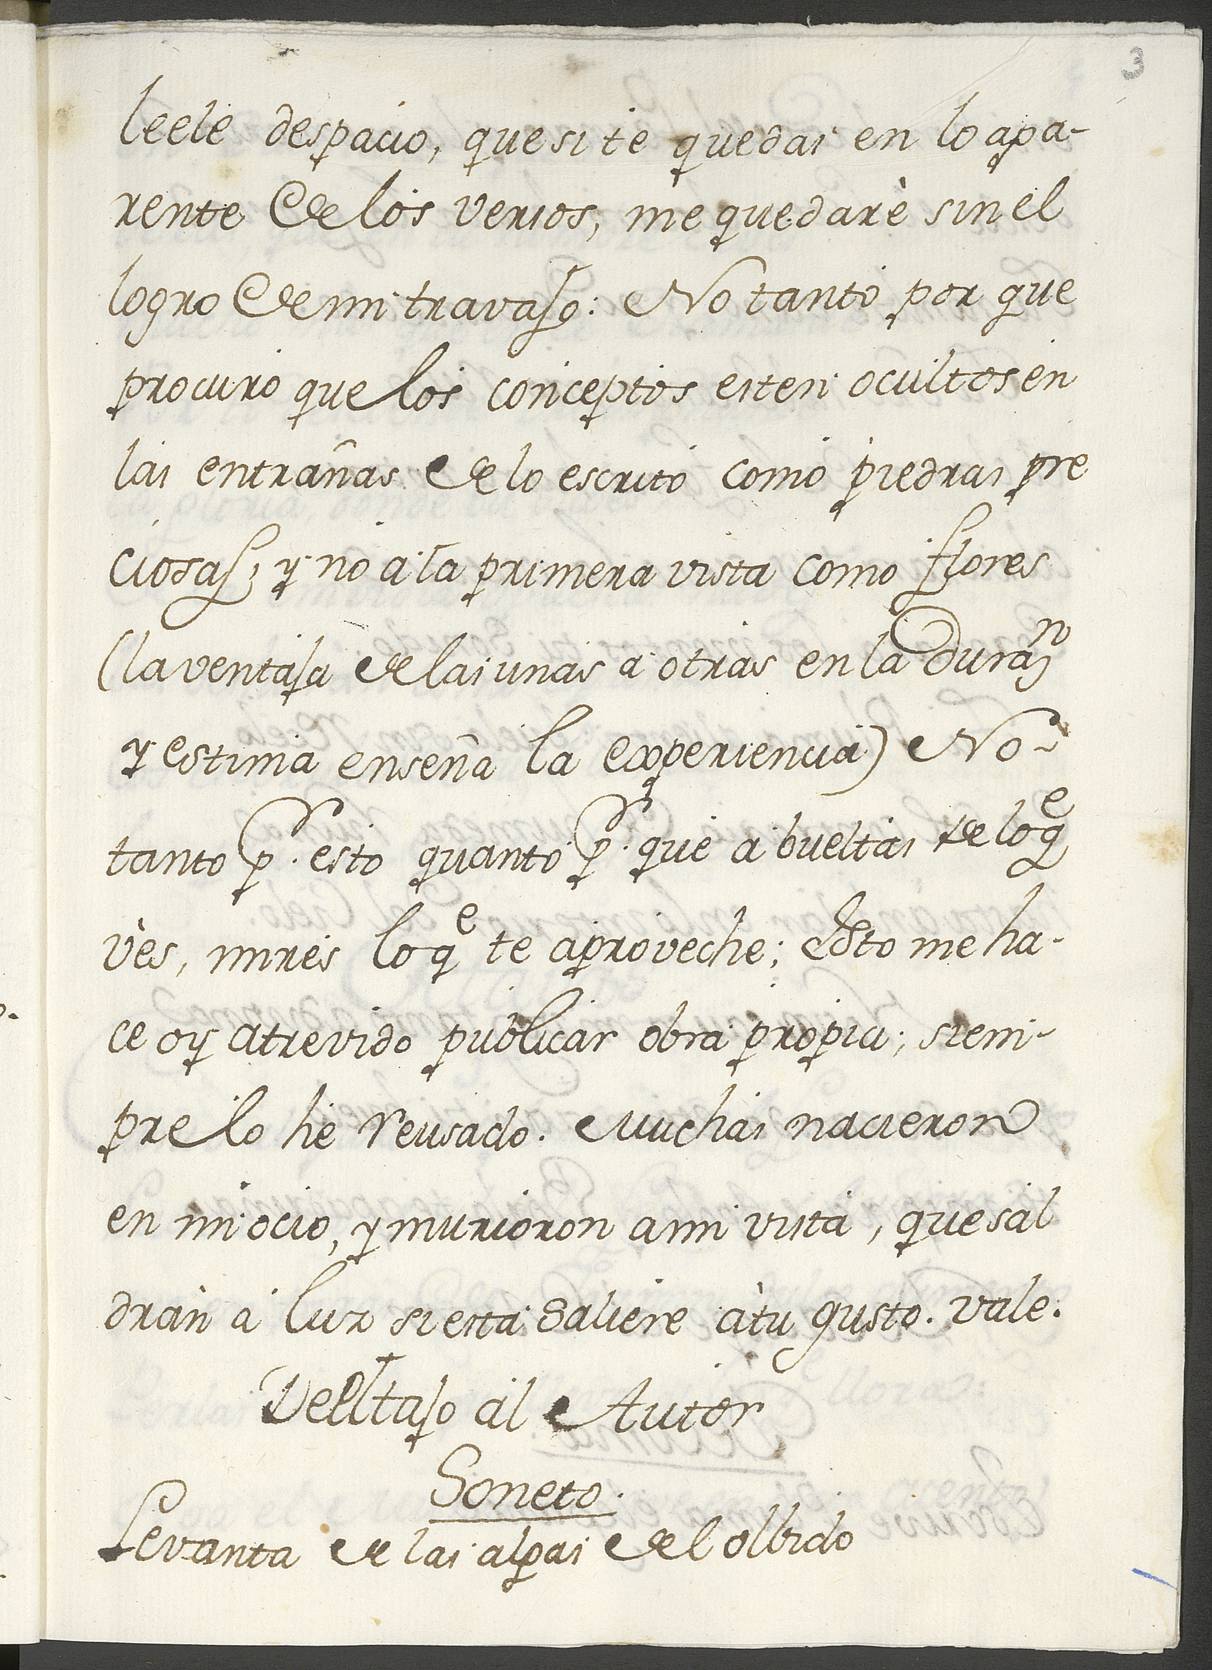 3
leele despacio, que si te quedas en lo apa-
rente de los versos, me quedarè sin el
logro de mi travajo: No tanto por que
procuro que los conceptos esten ocultos en
las entrañas de lo escrito como piedras pre
ciosas; y no a la primera vista como flores
(la ventaja de las unas a otras en la duraz.on
y estima enseña la experiencia) No-
tanto p.r esto quanto p.r que a bueltas de lo q.e
vès, mires lo q.e te aproveche; Esto me ha-
ce oy atrevido publicar obra propia; siem-
pre lo he reusado. Muchas nacieron
en mi ocio, y murioron a mi vista, que sal
dràn a luz si esta saliere à tu gusto. Vale.
Del Tajo al Autor
Soneto.
Levanta de las alpas del olbido